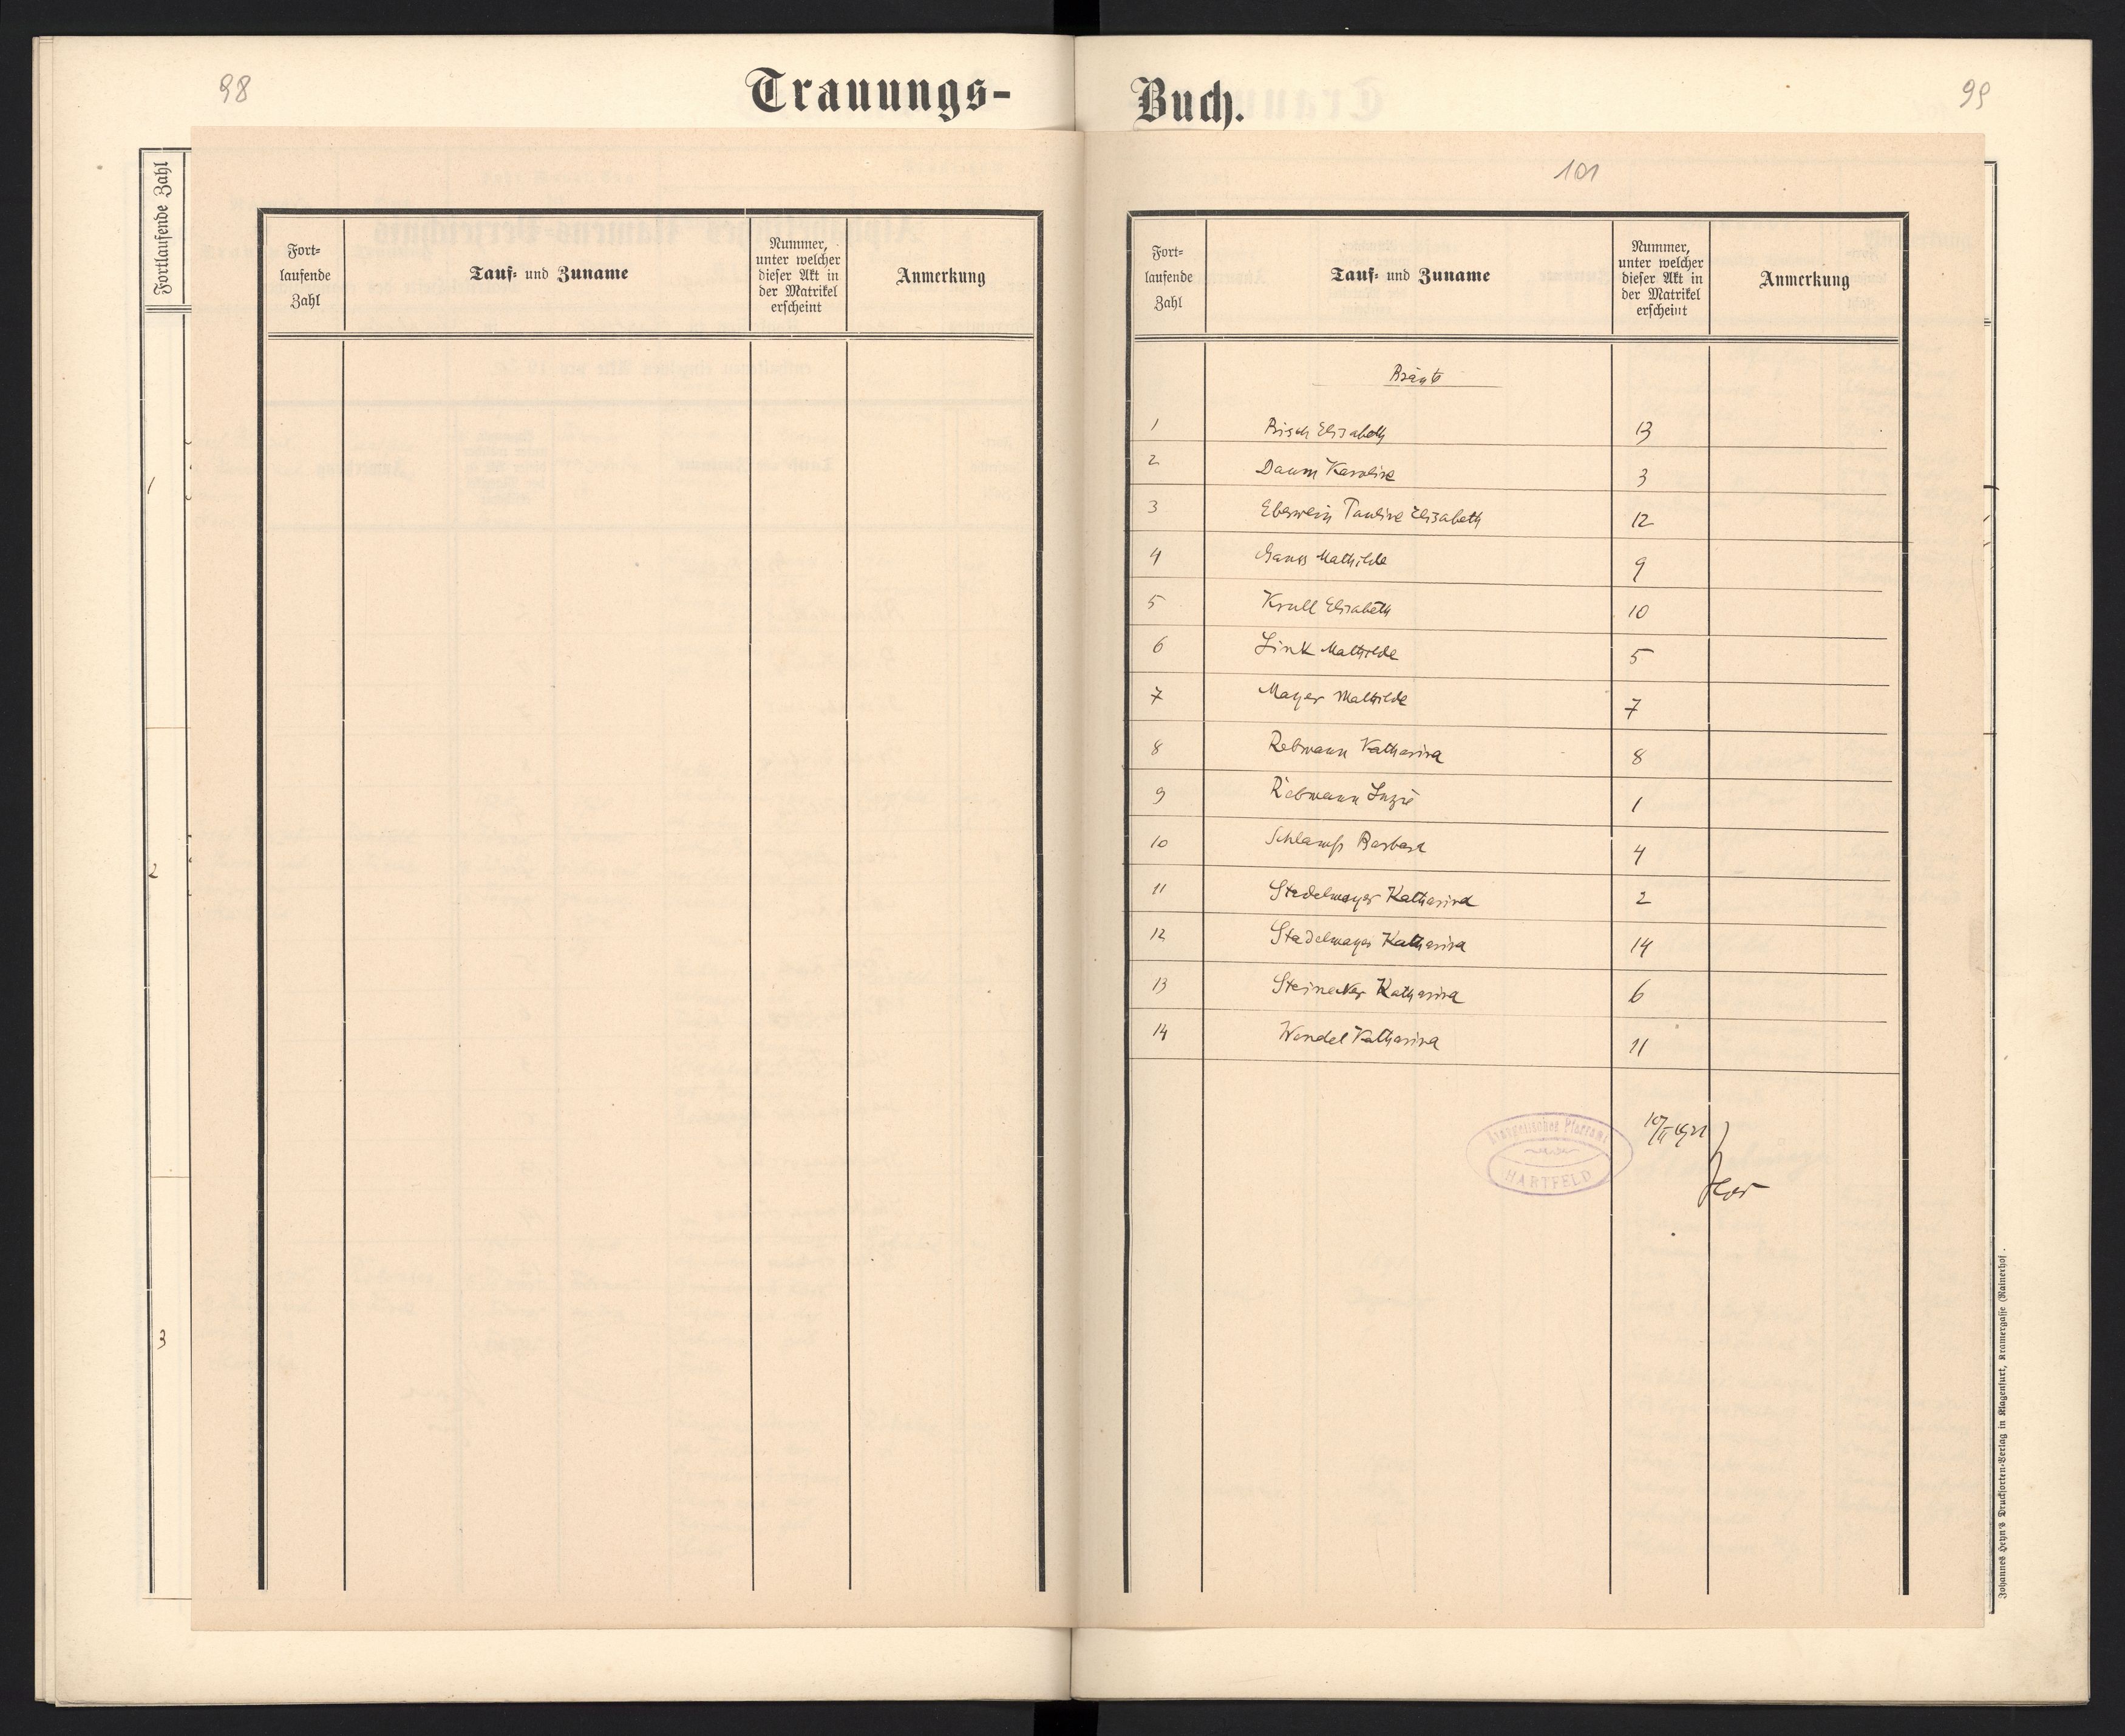 98
Trauungs-
Buch.
99
101
Fortlaufende Zahl
1
2
3
Fort-
laufende
Zahl
Tauf- und Zuname
Nummer,
unter welcher
dieser Akt in
der Matrikel
erscheint
Anmerkung
Fort-
laufende
Zahl
Tauf- und Zuname
Nummer,
unter welcher
dieser Akt in
der Matrikel
erscheint
Anmerkung
Bräute
1 Bisch Elisabeth 13
2 Daum Karoline 3
3 Eberwein Pauline Elisabeth 12
4 Gauss Mathilde 9
5 Krull Elisabeth 10
6 Link Mathilde 5
7 Mayer Mathilde 7
8 Rebmann Katharina 8
9 Rebmann Luzie 1
10 Schlamp Barbara 4
11 Stadelmayer Katharina 2
12 Stadelmayer Katharina 14
13 Steinecker Katharina 6
14 Wendel Katharina 11
Evangelisches Pfarramt
HARTFELD
Johannes Heyn's Drucksorten-Verlag in Klagenfurt, Kramergasse (Rainerhof).